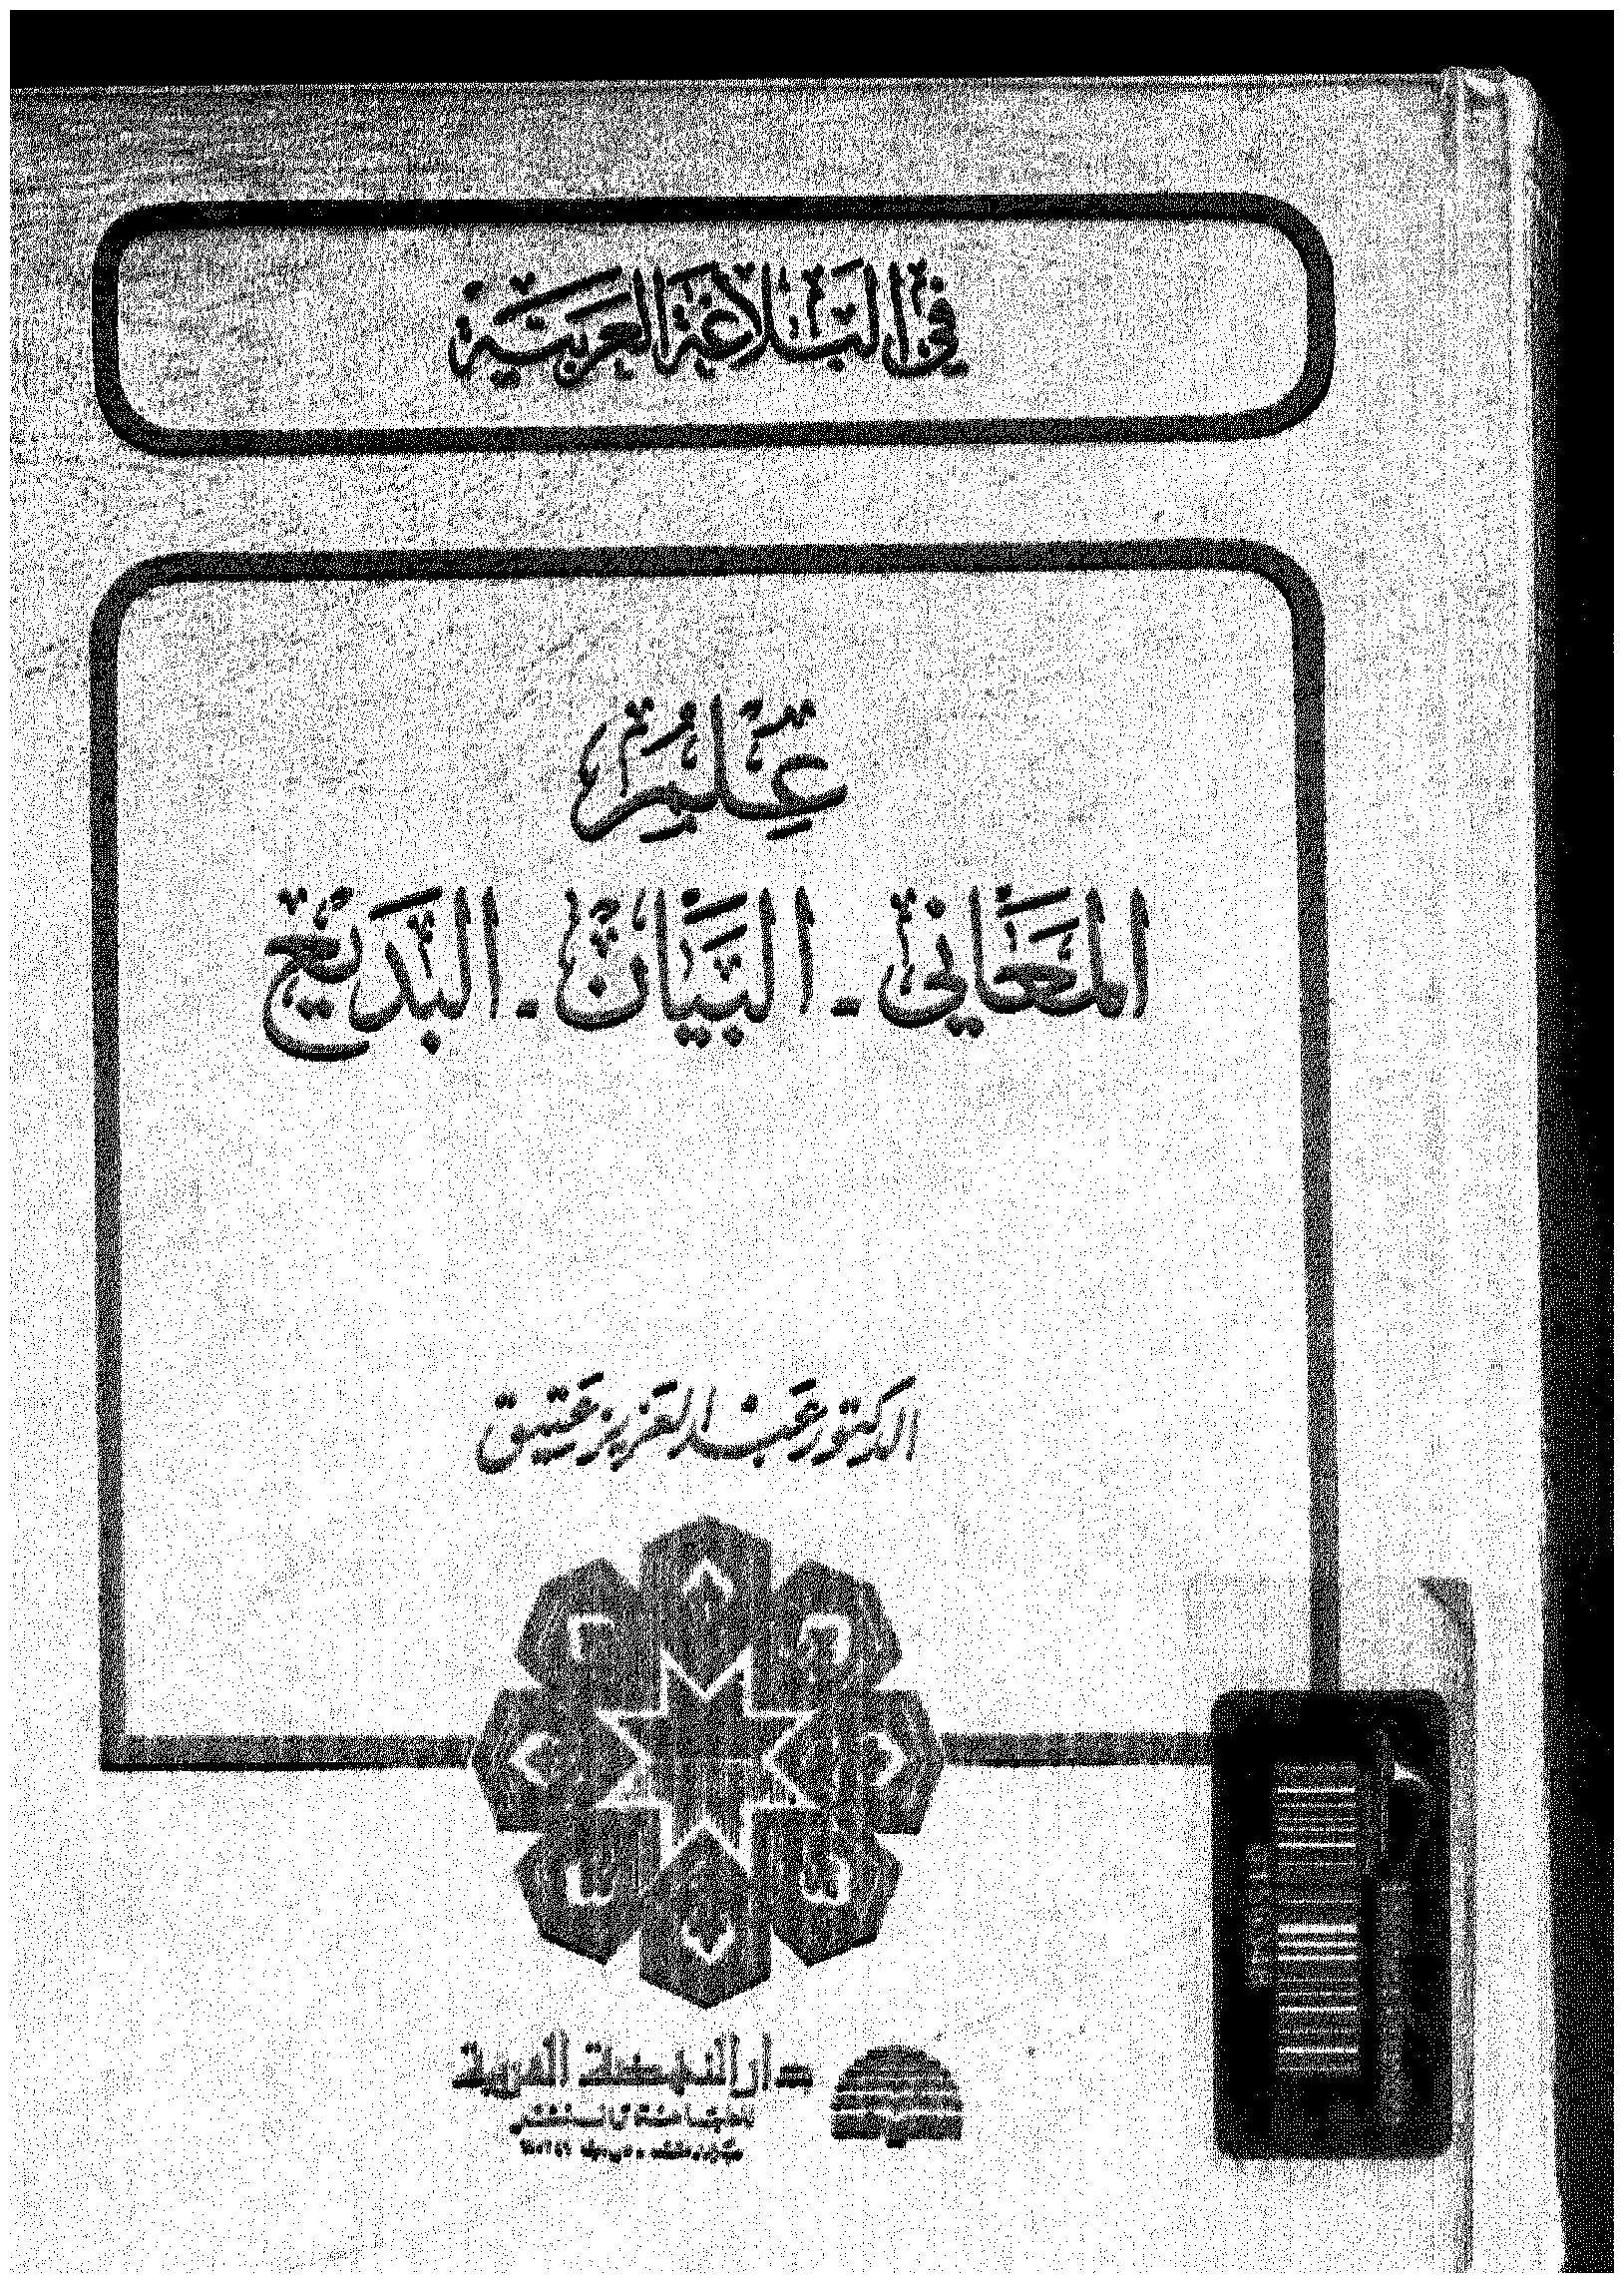 في البلاغة العربية
علم
المعاني - البيان - البديع
الدكتور عبد العزيز عتيق
دار النهضة العربية
للطباعة والنشر